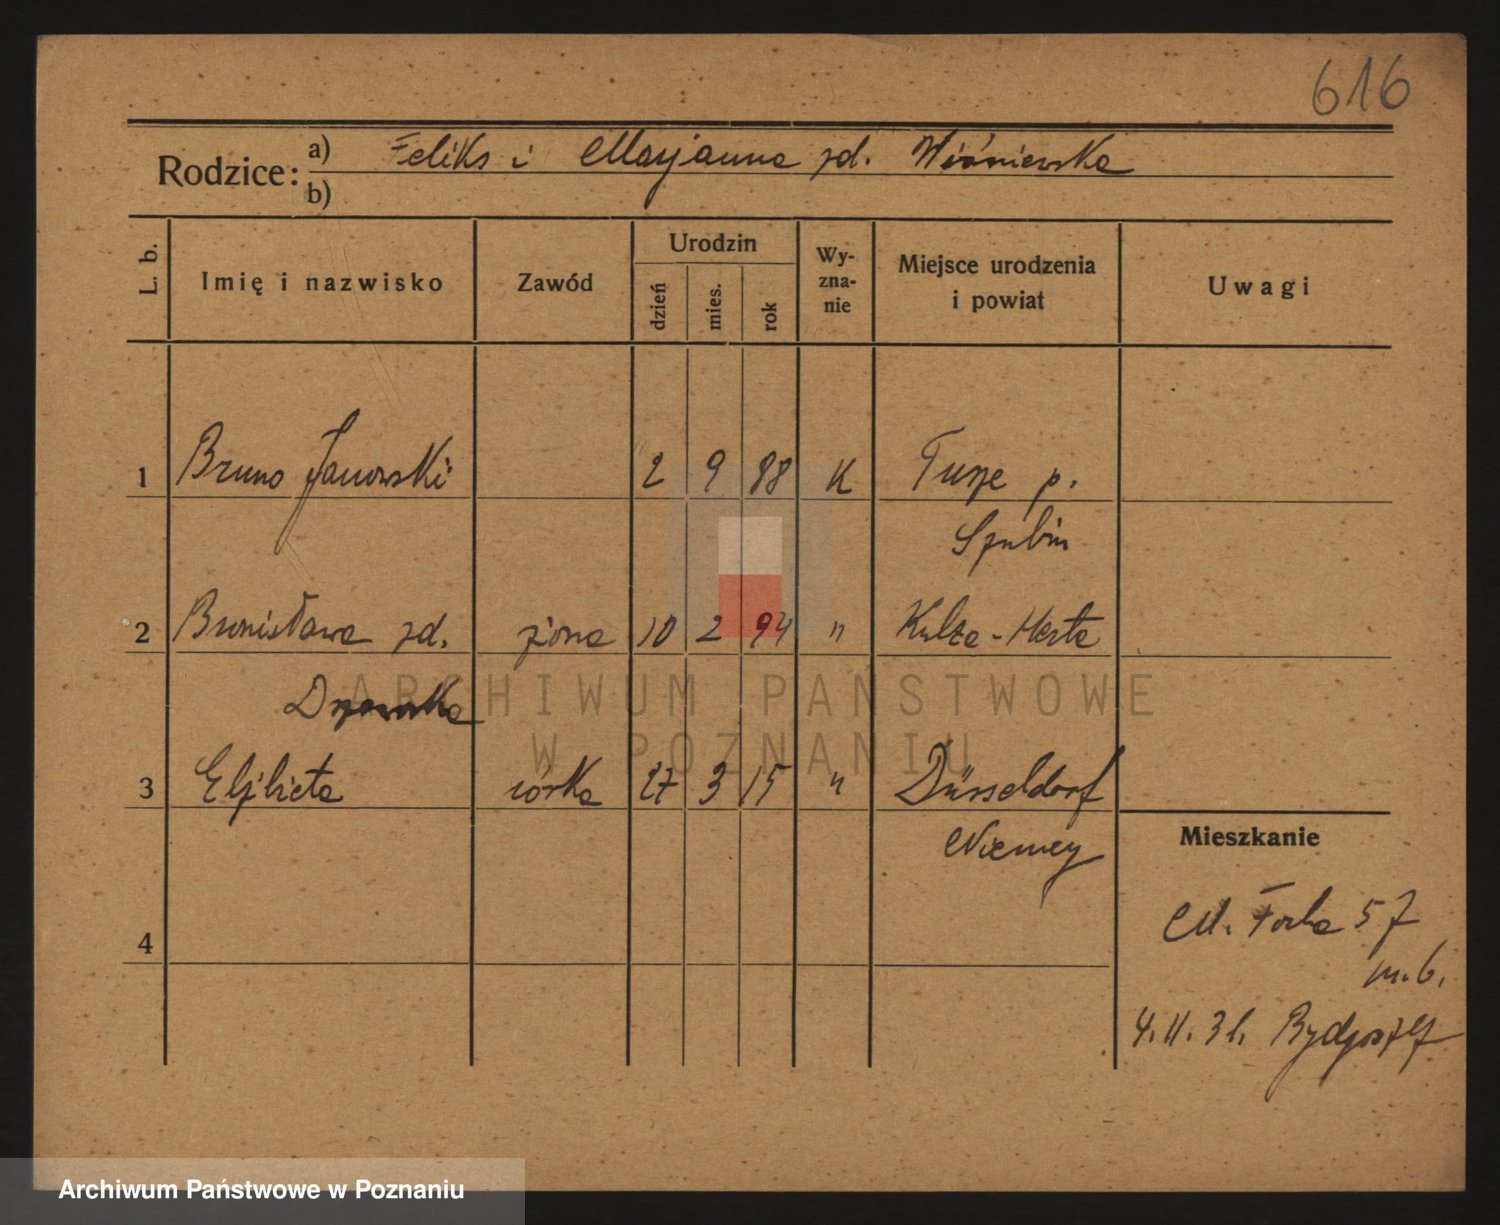 616
Rodzice: a) Feliks i Maryanna zd. Wiśniewska
b)
L. b.
Imię i nazwisko
Zawód
Urodzin
dzień
mies.
rok
Wy-
zna-
nie
Miejsce urodzenia
i powiat
Uwagi
1 Bruno Janowski 2 9 88 K Tupe p.
Szubin
2 Bronisława zd. żona 10 2 94 "
3 Elżbieta córka 27 3 15 " Düsseldorf
Niemcy
Mieszkanie
M. Focha 57
m. 6.
Bydgoszcz
4
ARCHIWUM PAŃSTWOWE
W POZNANIU
Archiwum Państwowe w Poznaniu